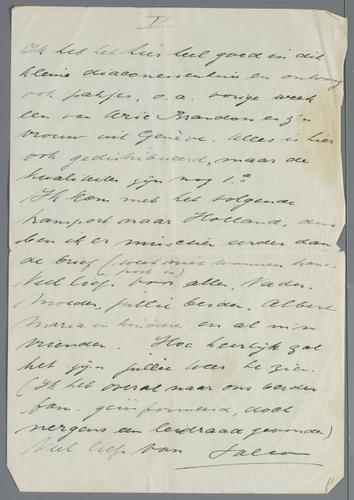 V
Ik heb het hier heel goed in dit
kleine diaconessenhuis en ontvang
ook pakjes, o.a. vorige week
een van Arie Brandon en z'n
vrouw uit Genève. Alles is hier
ook gedistribueerd, maar de
kwaliteiten zijn nog 1.a
Ik kom met het volgende
transport naar Holland, dus
ben ik er misschien eerder dan
de brief (weet niet wanneer trans-
port is)
Veel liefs voor allen, Vader,
Moeder, jullie beiden, Albert
Maria en kinderen en al mijn
vrienden. Hoe heerlijk zal
het zijn jullie weer te zien.
(Ik heb overal naar ons beider
fam. geïnformeerd, doch
nergens een leidraad gevonden)
Veel liefs van